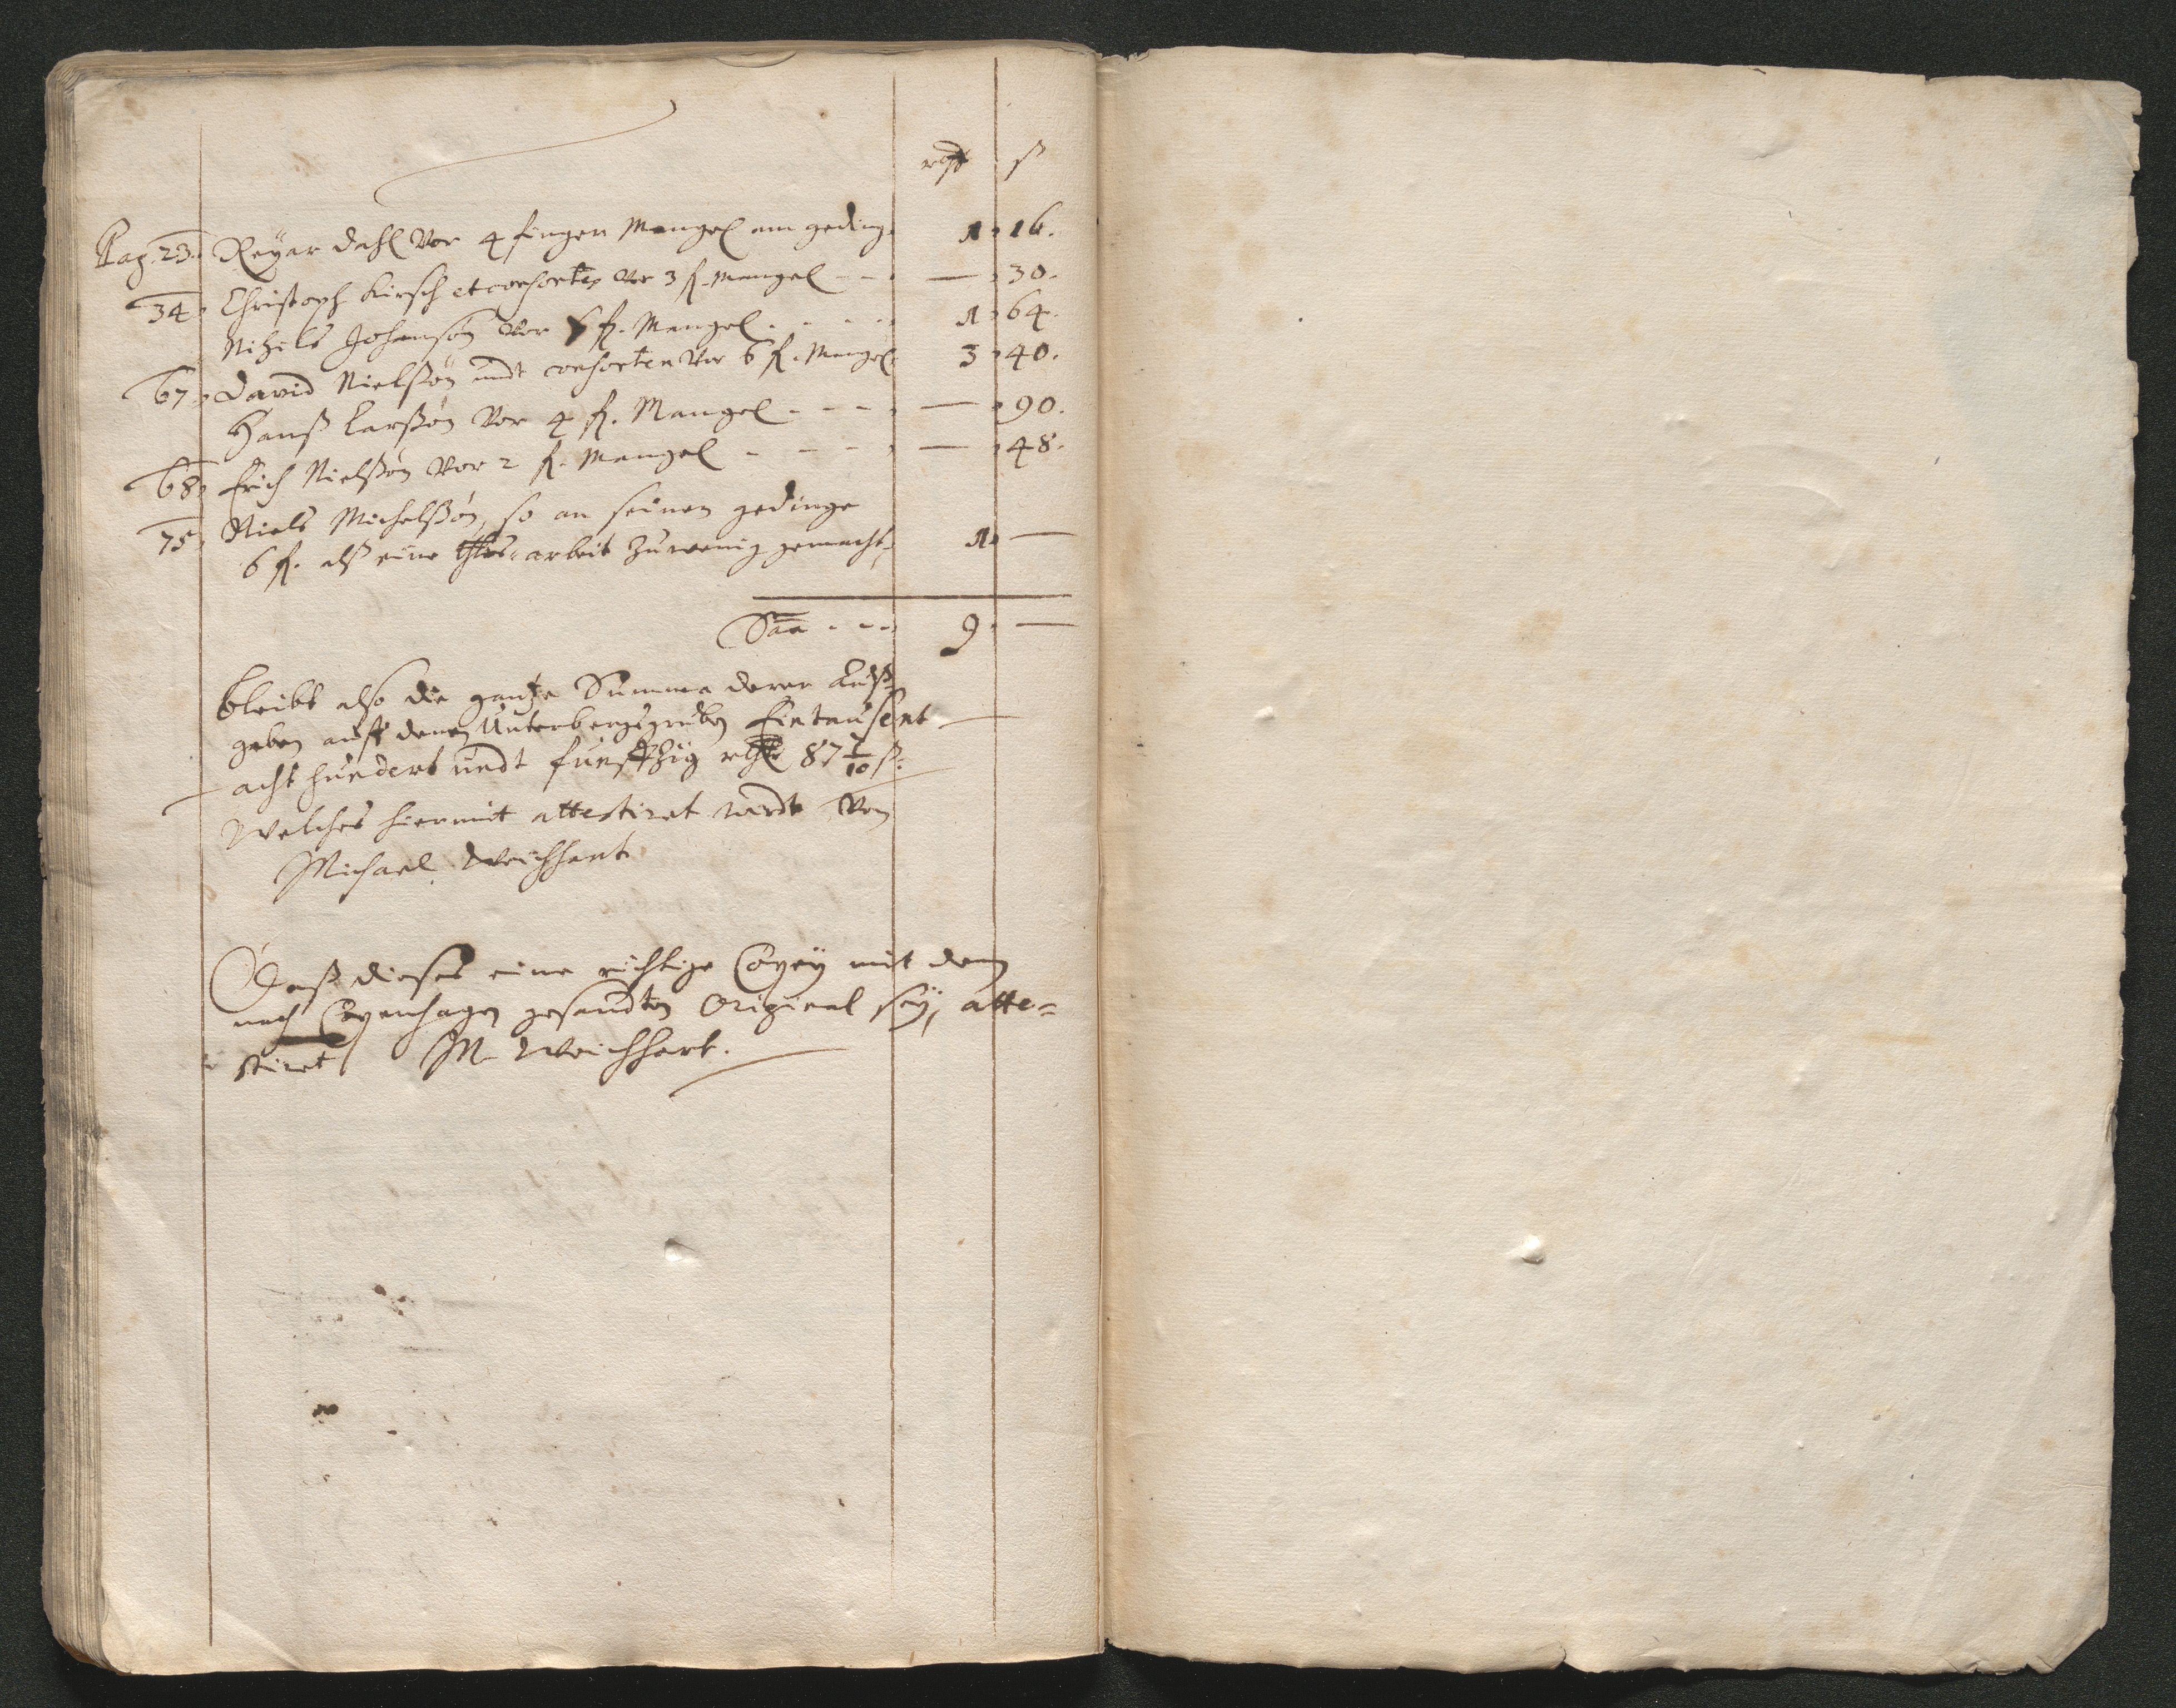 rth ß
Pag. 23. Reyer Dahl Vor 4 finger Mangel am geding. 1. 16.
34. Christoph Kirsch et consorten Vor 3 f. Mangel — 30.
Nihils Johanson Vor 6 f. Mangel 1. 64.
67. David Nielßøn undt consorten Vor 6 f. Mangel. 3. 40.
Hanß Larßøn Vor 4 f. Mangel — 90.
68. Erich Nielßøn Vor 2 f. Mangel — 48.
75. Niels Michelßøn, so an seinen gedinge
6 f. alß eine arbeit zu wenig gemacht, 1. —
Saa 9. —
Bleibt also die gantze Summa derer Auß¬
geben auff denen Unterbergsgruben Eintausent
acht hundert undt funfftzig rthl 87 7/10 ß.
Welches hiermit attestiret wirdt Von
Michael Weichhart
Daß dieses eine richtige Copey mit dem
nach Copenhagen gesandten Original sey, atte=
stiret M Weichhart.